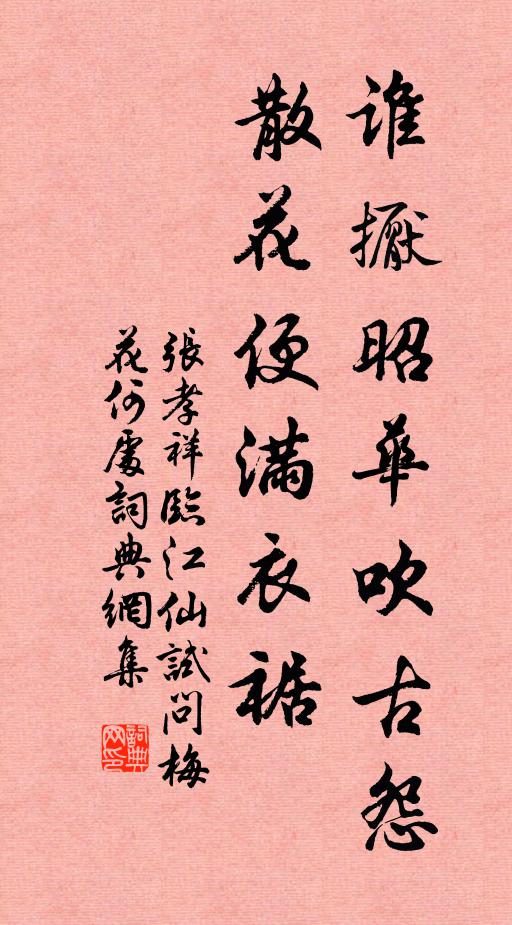 誰擫昭華吹古怨
散花便滿衣裾
張孝祥臨江仙試問梅
花何處詞典網集
詞典
网印